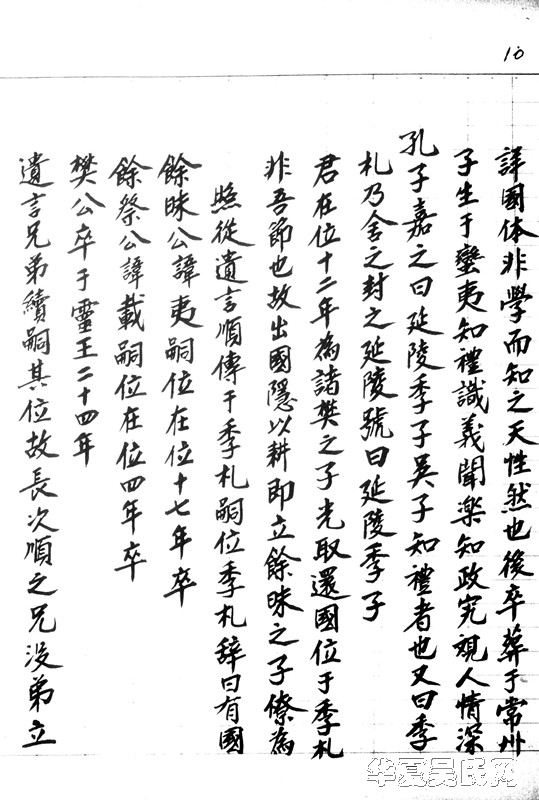 遺言兄弟續嗣其位故長次順之兄没弟立
樊公卒于靈王二十四年
餘祭公諱載嗣位在位四年卒
餘昧公諱夷嗣位在位十七年卒
照從遺言順傳于季札嗣位季札辞曰有國
非吾節也故出國隱以耕即立餘昧之子僚為
君在位十二年為諸樊之子光取還國位于季札
札乃舍之封之延陵號曰延陵季子
孔子嘉之曰延陵季子吳子知禮者也又曰季
子生于蠻夷知禮識義聞楽知政究覌人情深
詳國体非學而知之天性然也後卒葬于常州
10
华夏吴氏网